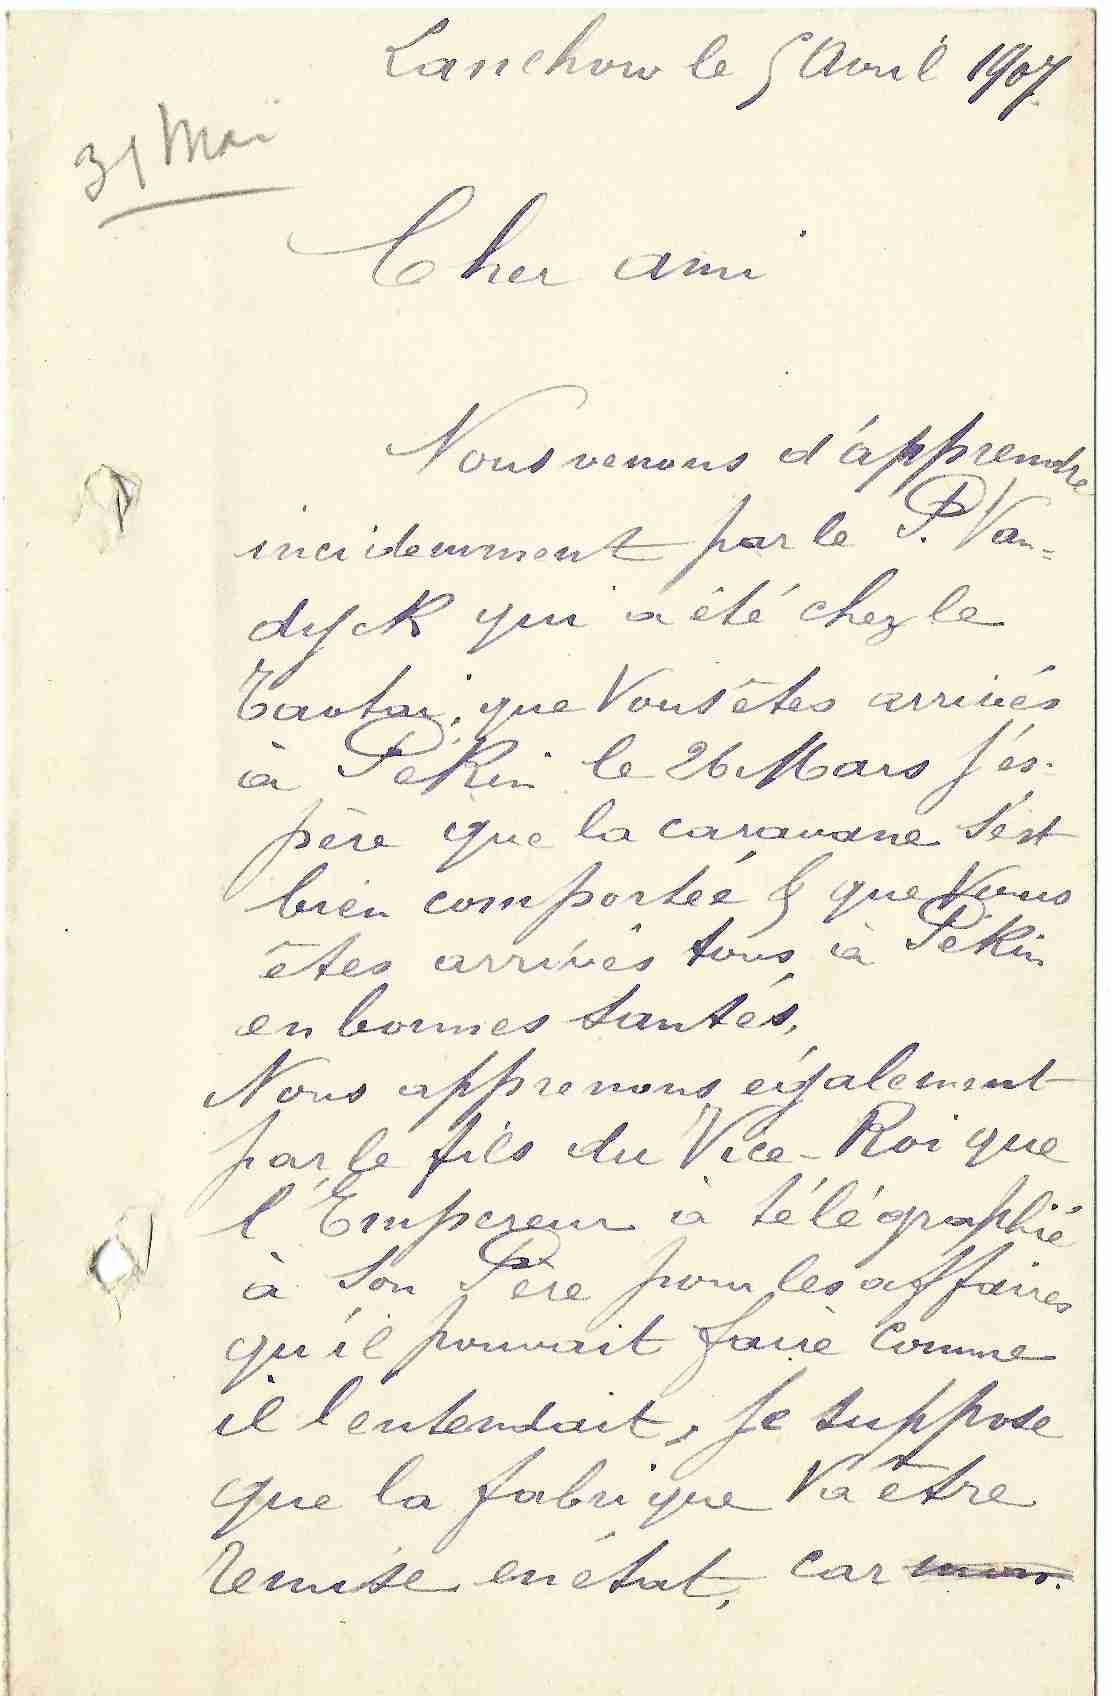 Lanchow le 5 Avril 1907
31 Mai
Cher ami
Nous venons d'apprendre
incidemment par le P. Van=
dyck qui a été chez le
Taotai, que Vous êtes arrivés
à Pékin le 26 Mars J'es-
père que la caravane s'est
bien comportée & que Vous
êtes arrivés tous à Pékin
en bonnes santés,
Nous apprenons également
par le fils du Vice-Roi que
l'Empereur à télégraphié
à Son Père pour les affaires
qu'il pouvait faire comme
il l'entendait, je suppose
que la fabrique Va être
remise en état, car